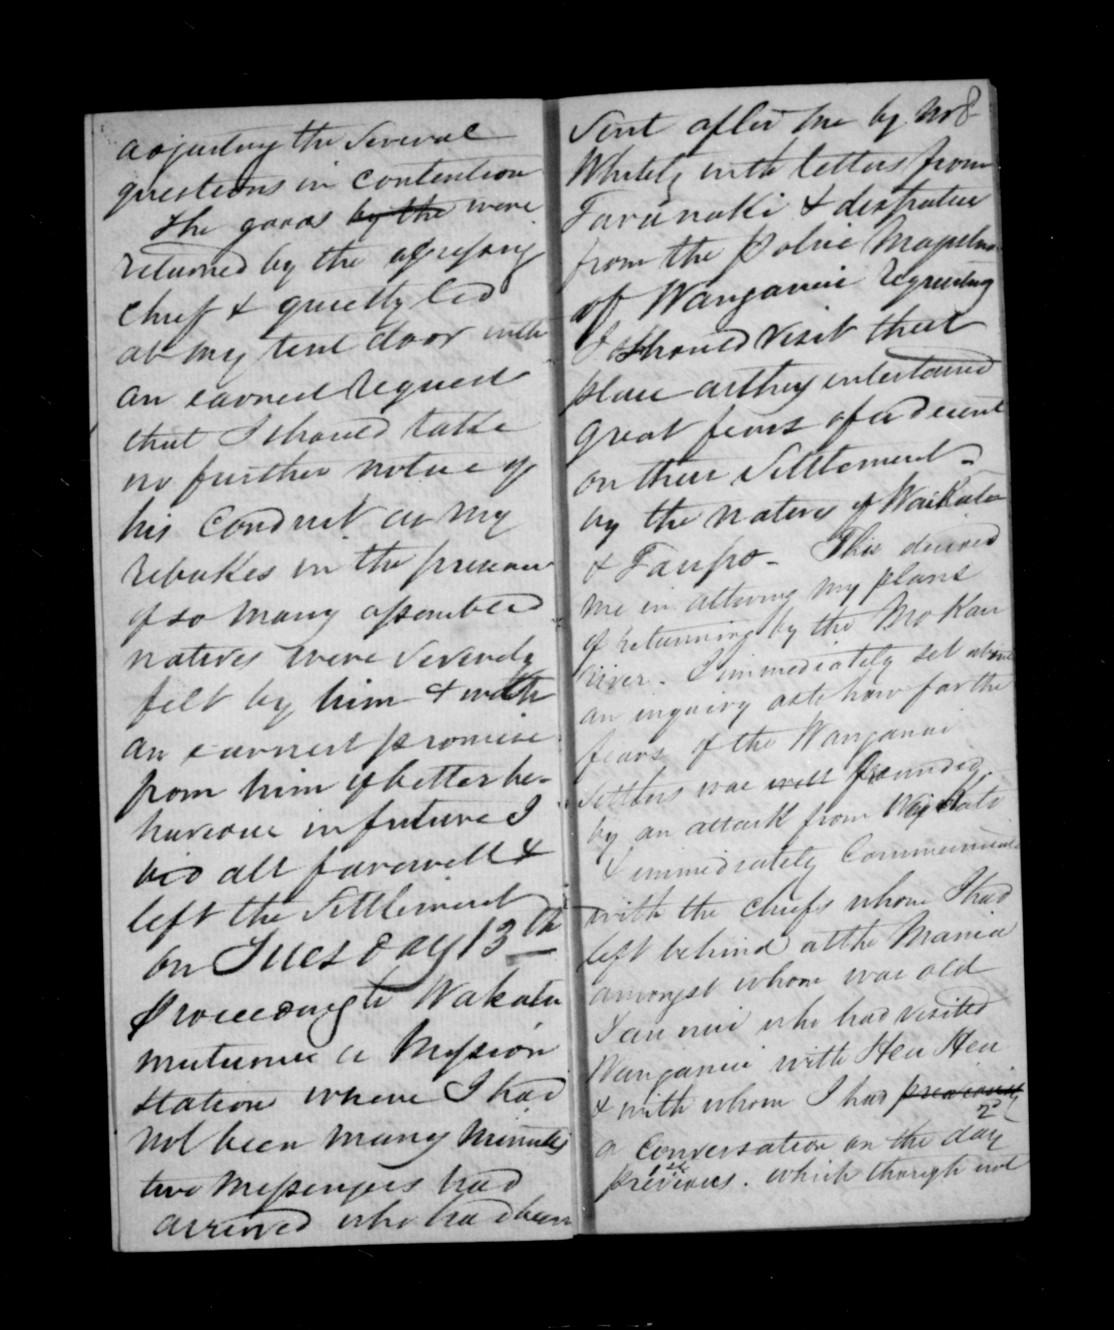 adjusting the several
questions in contention
The goods by the were
returned by the agressing
chief & quietly led
at my tent door with
an earnest request
that I should take
no further notice of
his conduct as my
rebukes in the presence
of so many assembled
natives were severely
felt by him & with
an earnest promise
from him of better be-
haviour in future I
bid all farewell &
left the settlement
on Tuesday 13th
proceeding to
a Mission
station where I had
not been many minutes
two Messengers had
arrived who had been
8
sent after me by Mr
Whitely with letters from
Taranaki & despatches
from the Police Magistrate
of Wanganui requesting
I should visit that
place as they entertained
great fears of a descent
on their settlement
by the natives of Waikato
& Taupo - This decided
me in altering my plans
of returning by the Mokau
river. I immediately set about
an inquiry as to how far the
fears of the Wanganui
settlers was well grounded
by an attack from Waikato
I immediately Communicated
with the chiefs whom I had
left behind at the Mania
amongst whom was old
Taonui who had visited
Wanganui with Heu Heu
& with whom I had previously
a conversation on the day 2
previous 1 . which though not